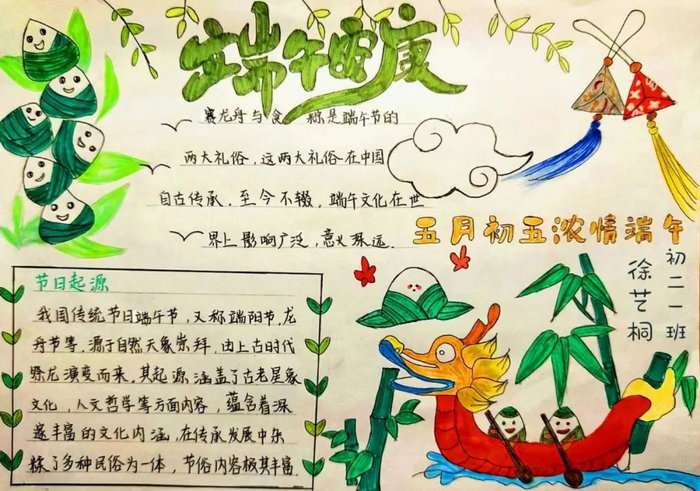 端午安康
赛龙舟与食 粽是端午节的
两大礼俗，这两大礼俗在中国
自古传承，至今不辍，端午文化在世
界上影响广泛，意义深远.
五月初五浓情端午
初二一班
徐艺桐
节日起源
我国传统节日端午节，又称端阳节、龙
舟节等，源于自然天象崇拜，由上古时代
祭龙演变而来，其起源涵盖了古老星象
文化，人文哲学等方面内容，蕴含着深
邃丰富的文化内涵，在传承发展中杂
糅了多种民俗为一体，节俗内容极其丰富.